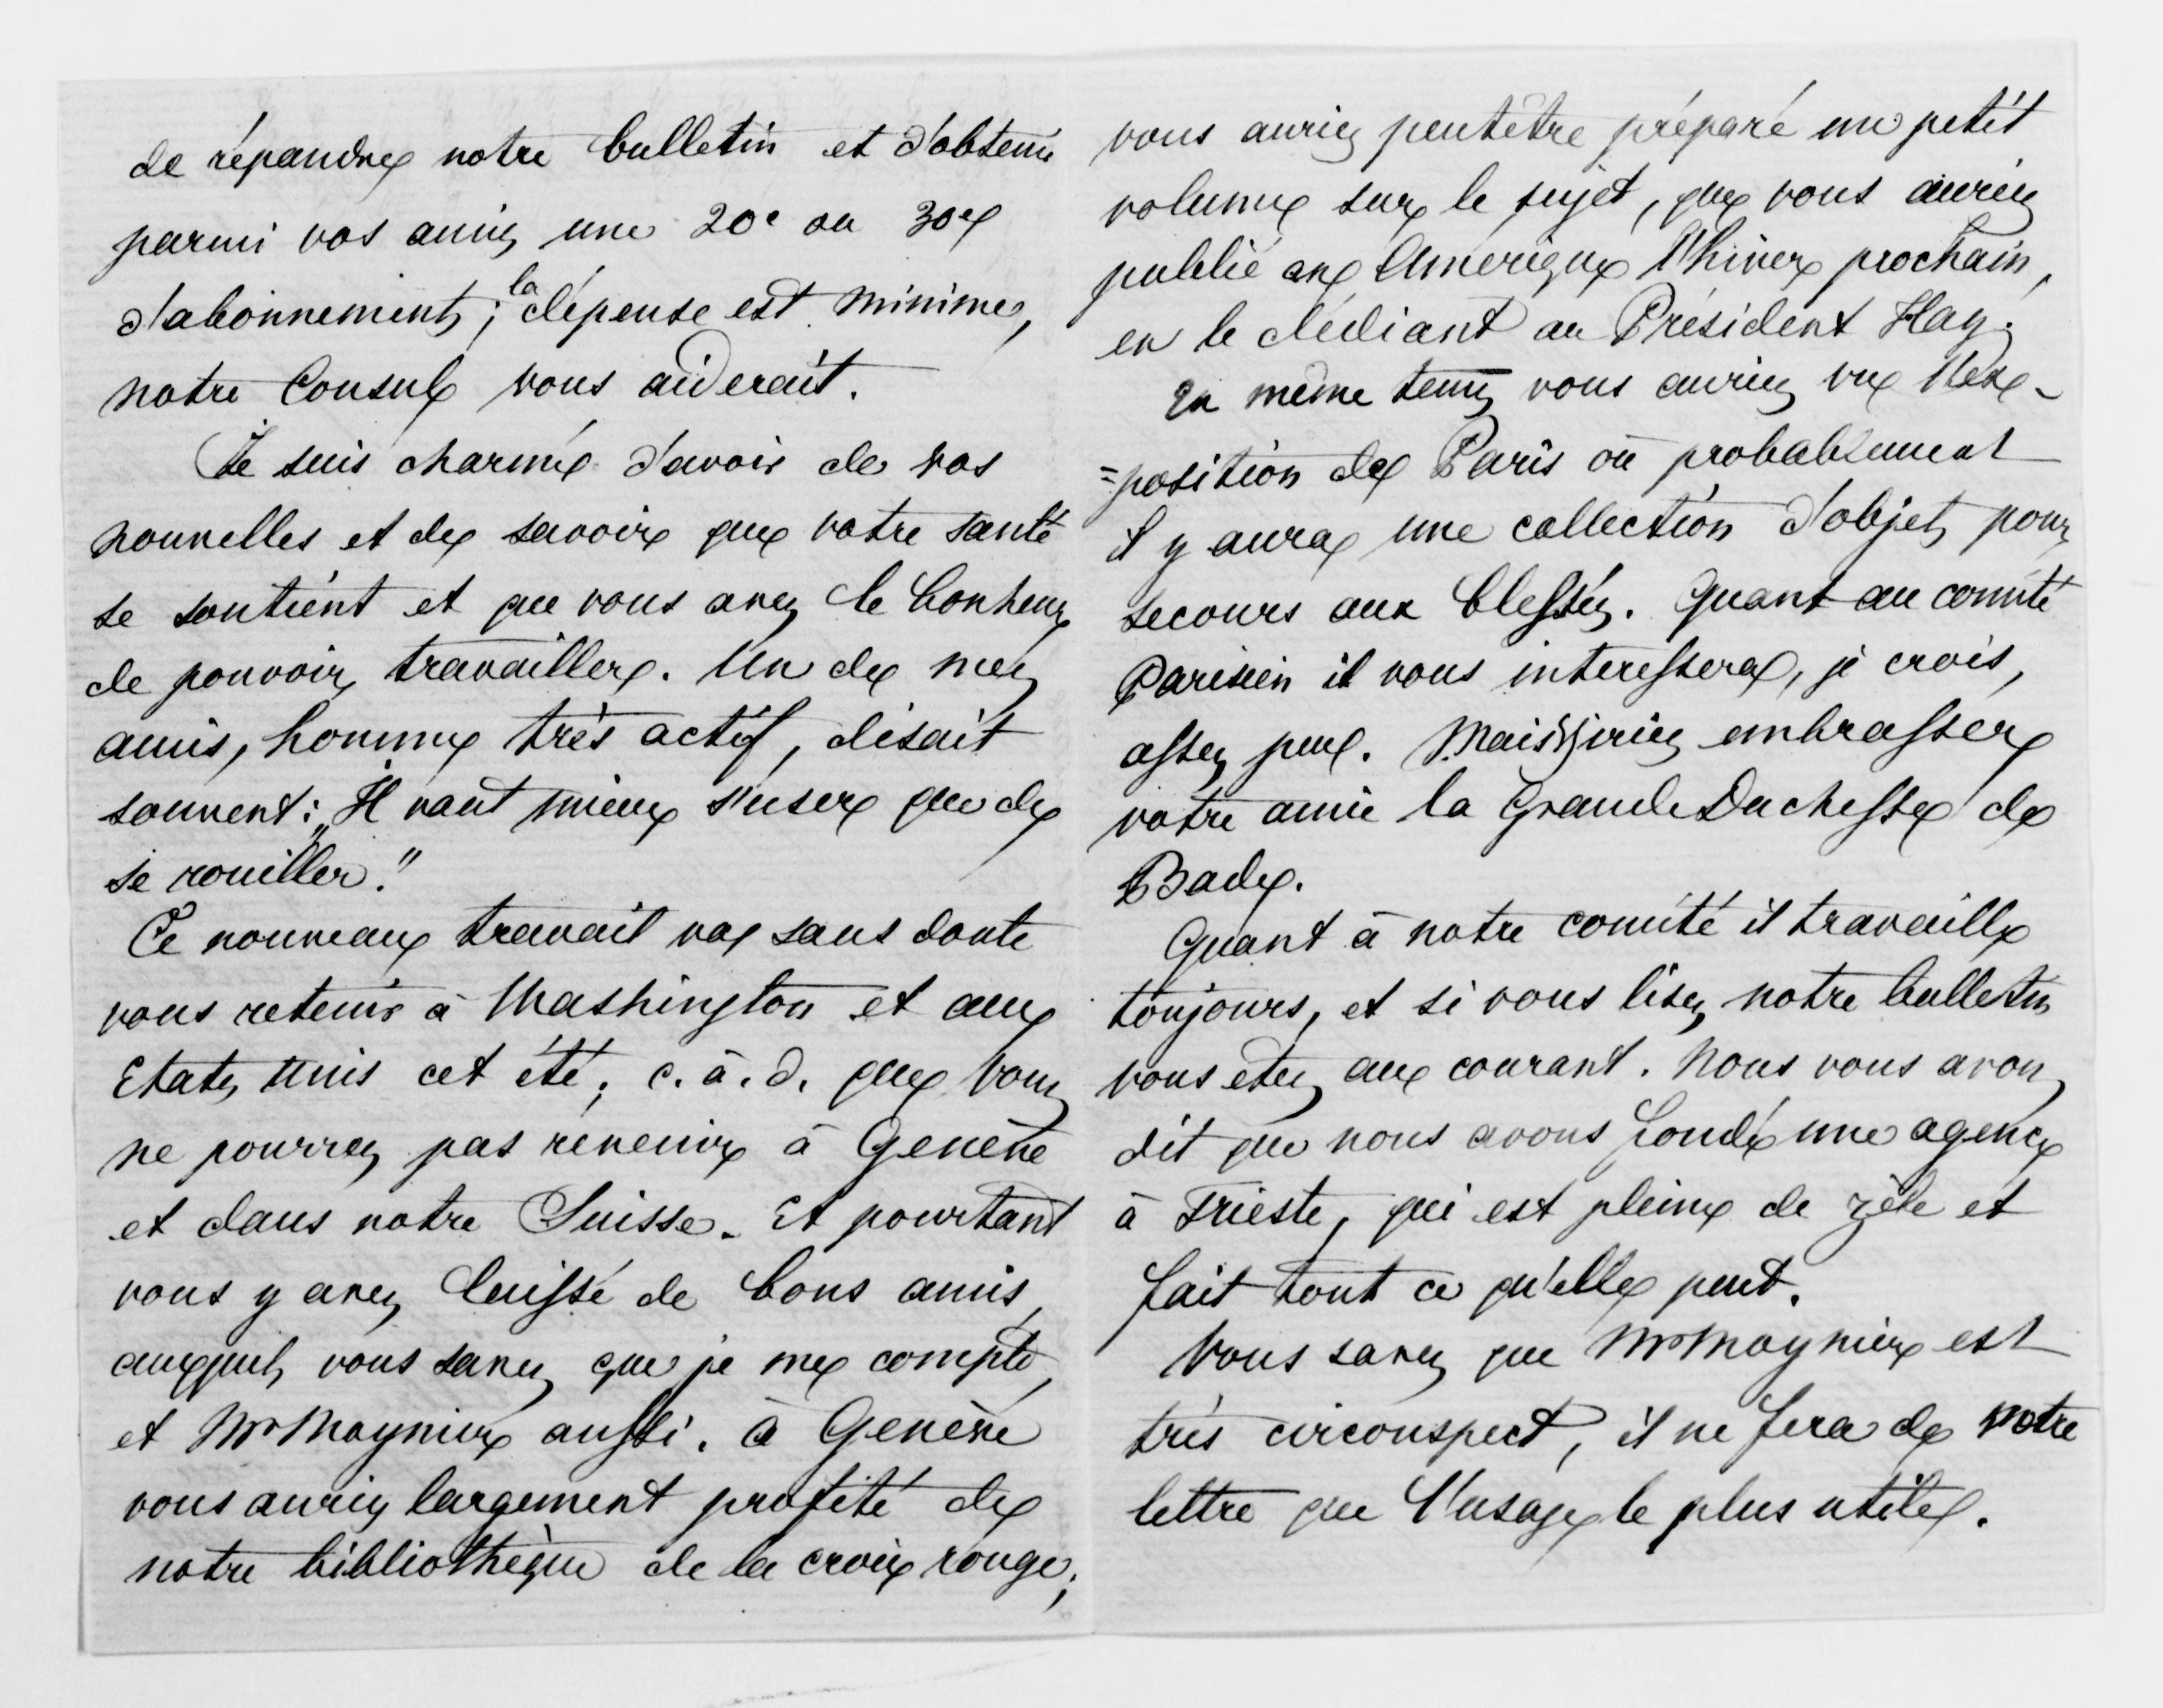 de répandre notre bulletin et d'obtenir
parmi vos amis une 20e ou 30e
d'abonnements; la dépense est minime,
notre Consul vous aiderait.
Je suis charmé d'avoir de vos
nouvelles et de savoir que votre santé
se soutient et que vous avez le bonheur
de pouvoir travailler. Un de mes
amis, homme très actif, disait
souvent: „Il vaut mieux s'user que de
se rouiller."
Ce nouveau travail va sans doute
vous retenir à Washington et aux
Etats Unis cet été; c. à. d. que vous
ne pourrez pas revenir à Genève
et dans notre Suisse. Et pourtant
vous y avez laissé de bons amis,
auxquels vous savez que je me compte,
et Mr Moynier aussi. à Genève
vous auriez largement profité de
notre bibliothèque de la croix rouge;
vous auriez peutêtre préparé un petit
volume sur le sujet, que vous auriez
publié en Amérique l'hiver prochain,
en le dédiant au Président Hay.
En même tems vous auriez vu l'ex-
=position de Paris où probablement
il y aura une collection d'objets pour
secours aux blessés. Quant au comité
Parisien il vous interessera, je crois,
assez peu. Mais s'iriez embrasser
votre amie la Grande Duchesse de
Bade.
Quant à notre comité il travaille
toujours, et si vous lisez notre bulletin
vous etes au courant. Nous vous avons
dit que nous avons fondé une agence
à Trieste, qui est pleine de zèle et
fait tout ce qu'elle peut.
Vous savez que Mr Moynier est
très circonspect, il ne fera de votre
lettre que l'usage le plus utile.